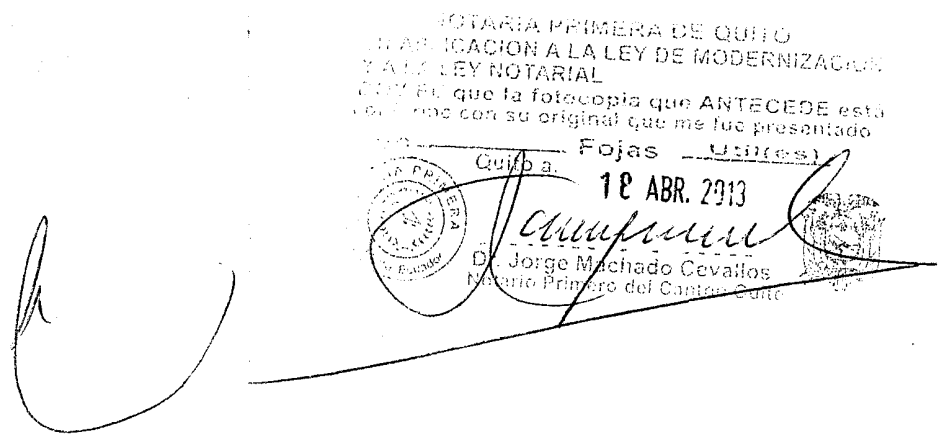 NOTARIA PRIMERA DE QUITO
EN APLICACION A LA LEY DE MODERNIZACION
Y A LA LEY NOTARIAL
DOY FE que la fotocopia que ANTECEDE está
conforme con su original que me fue presentado
Fojas Util(es)
Quito a,
18 ABR. 2013
Dr. Jorge Machado Cevallos
Notario Primero del Cantón Quito
PRIMERA
Ecuador